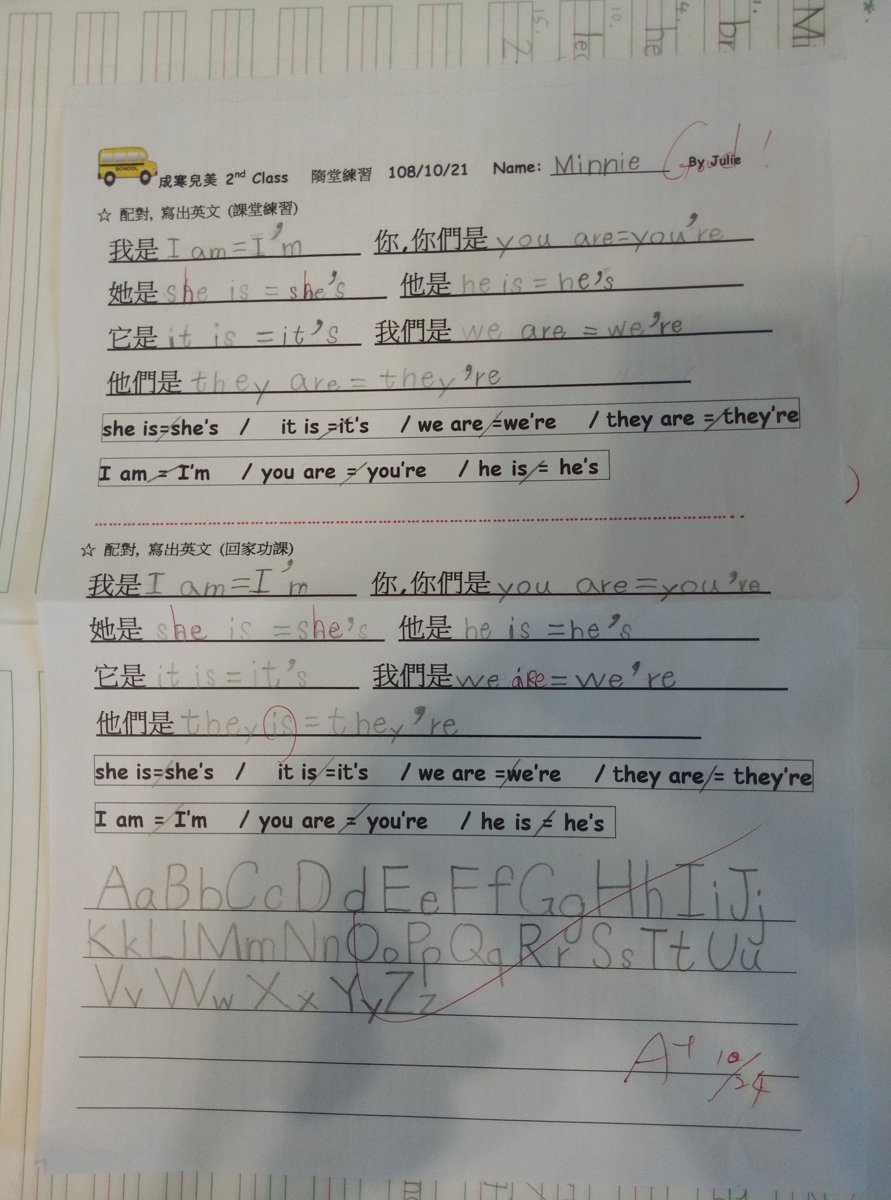 Mi
br
he
ler
2
15.
10.
4.
SCHOOL
成寒兒美 2nd Class 隨堂練習 108/10/21 Name: Minnie By Julie Good!
☆ 配對, 寫出英文 (課堂練習)
我是 I am=I'm 你,你們是 you are=you're
她是 she is = she's 他是 he is = he's
它是 it is = it's 我們是 we are = we're
他們是 they are = they're
she is=she's / it is =it's / we are =we're / they are = they're
I am = I'm / you are = you're / he is = he's
☆ 配對, 寫出英文 (回家功課)
我是 I am=I'm 你,你們是 you are=you're
她是 she is =she's 他是 he is =he's
它是 it is = it's 我們是 we are = we're
他們是 they is = they're
she is=she's / it is =it's / we are =we're / they are = they're
I am = I'm / you are = you're / he is = he's
AaBbCcDdEeFfGgHhIiJj
KkLlMmNnOoPpQqRrSsTtUu
VvWwXxYyZz
A+ 10/24